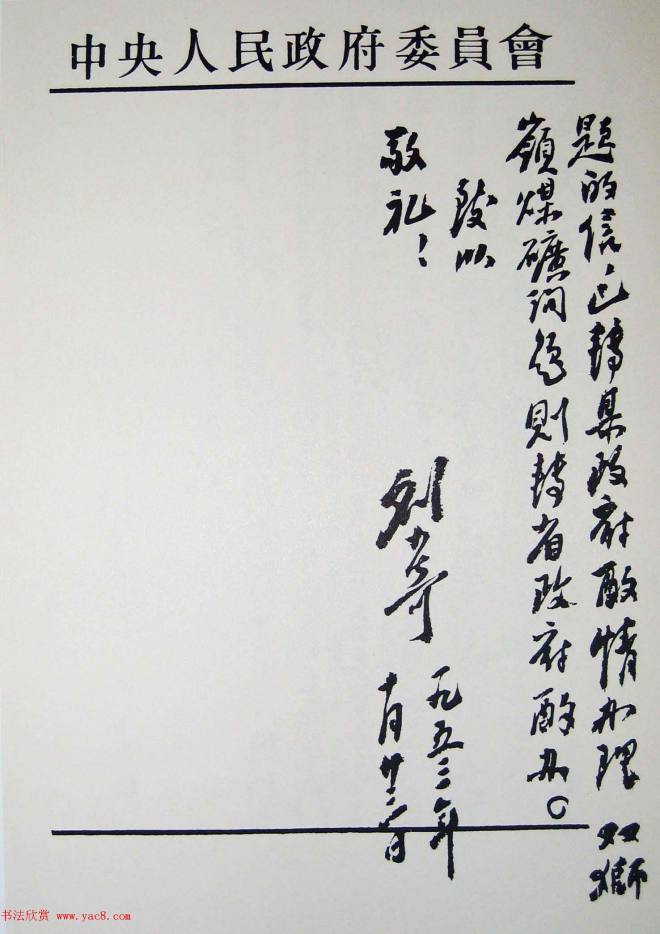 中央人民政府委員會
题的信，已转县政府酌情办理 双獅
嶺煤礦问题则转省政府酌办。
致以
敬礼！
刘少奇
一九五三年
十月廿三日
书法欣赏 www.yac8.com